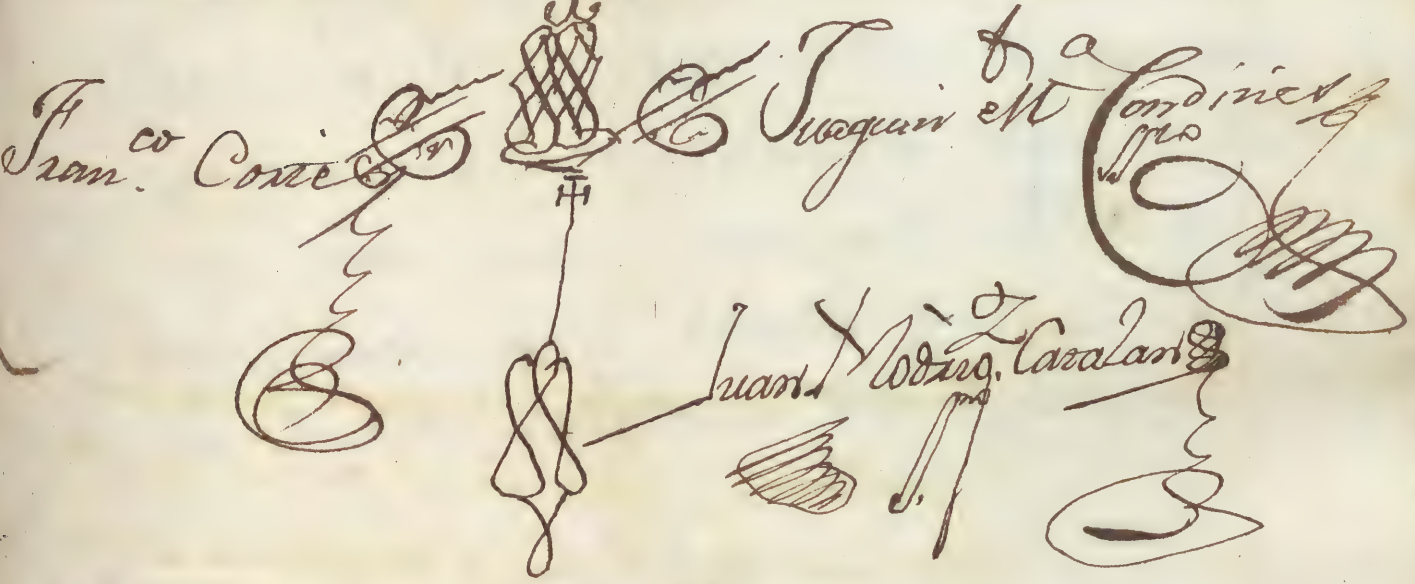 Fran.co Corte
Juaquin M.a Condines
ssno
Juan Rodrig.z Catalan